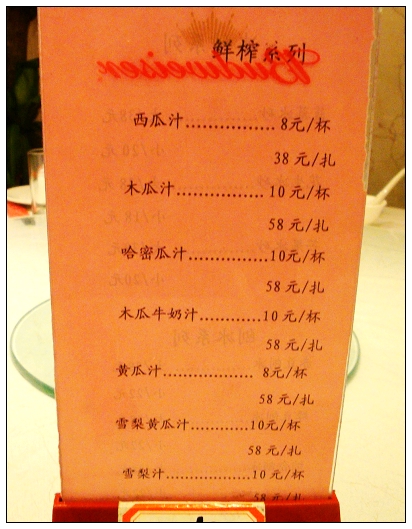 鲜榨系列
Budweiser
西瓜汁................ 8元/杯
38 元/扎
木瓜汁................ 10 元/杯
58 元/扎
哈密瓜汁...............10元/杯
58 元/扎
木瓜牛奶汁............10 元/杯
58 元/扎
黄瓜汁................. 8元/杯
58 元/扎
雪梨黄瓜汁............10元/杯
58 元/扎
雪梨汁..................10 元/杯
58 元/扎